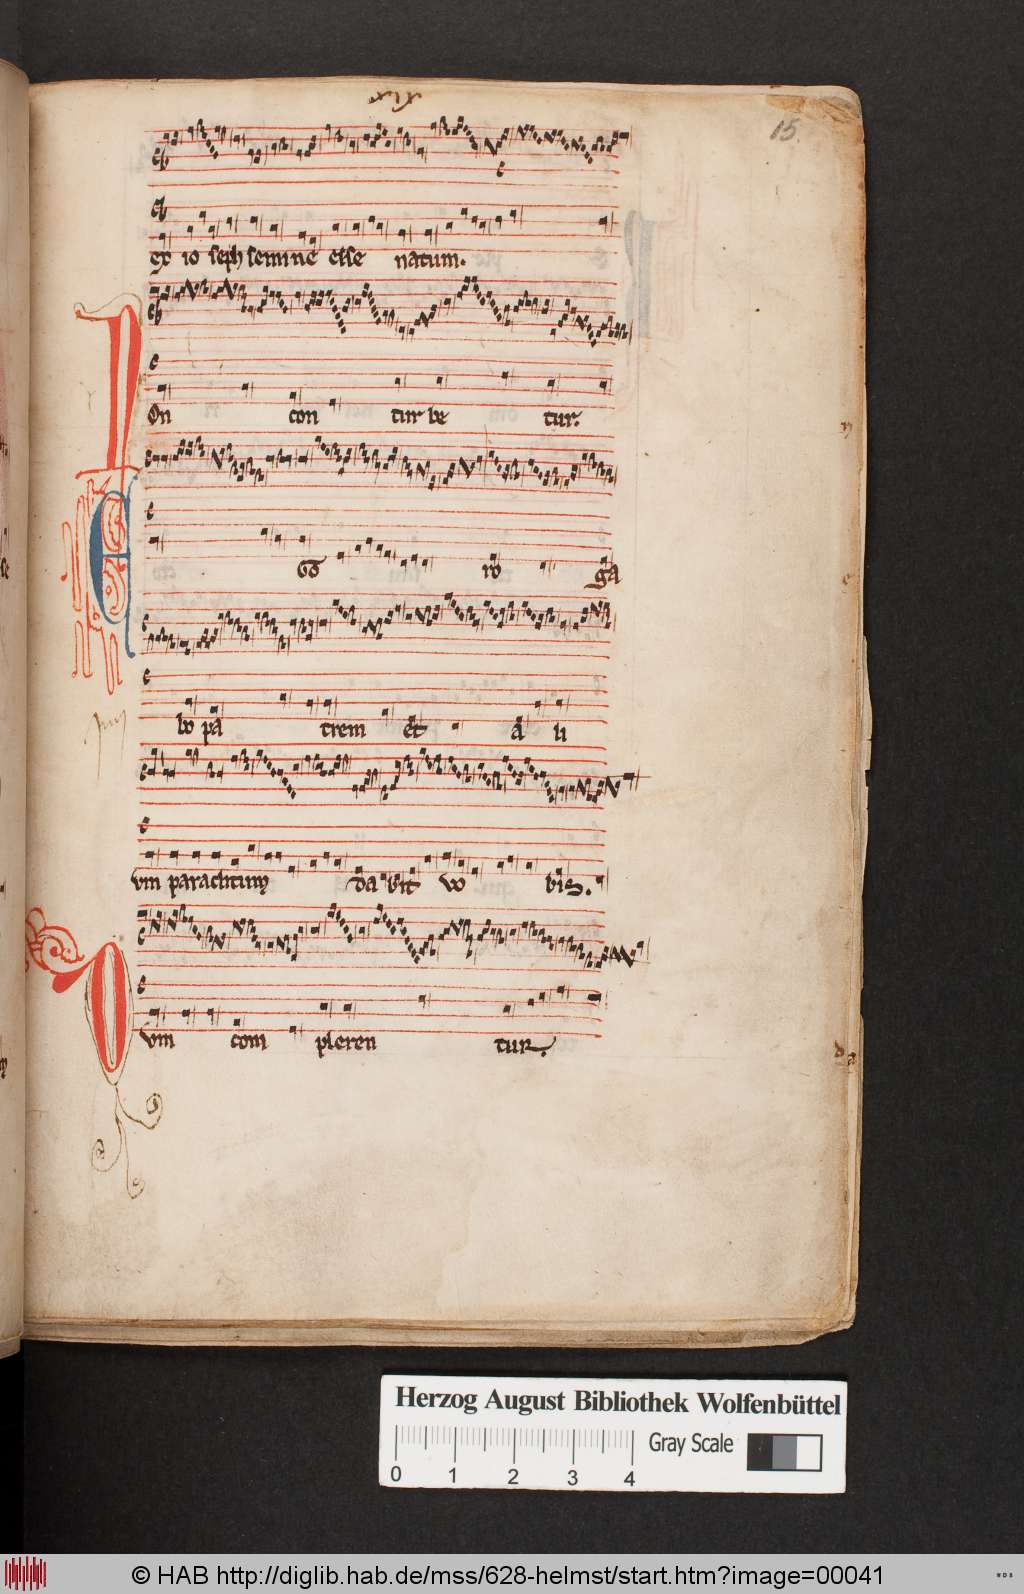 xix
15.
ex io seph semine esse natum.
Non con tur be tur.
Ego ro ga
bo pa trem et a li
um paraclitum da bit vo bis.
Dum com pleren tur.
Herzog August Bibliothek Wolfenbüttel
Gray Scale
0 1 2 3 4
© HAB http://diglib.hab.de/mss/628-helmst/start.htm?image=00041